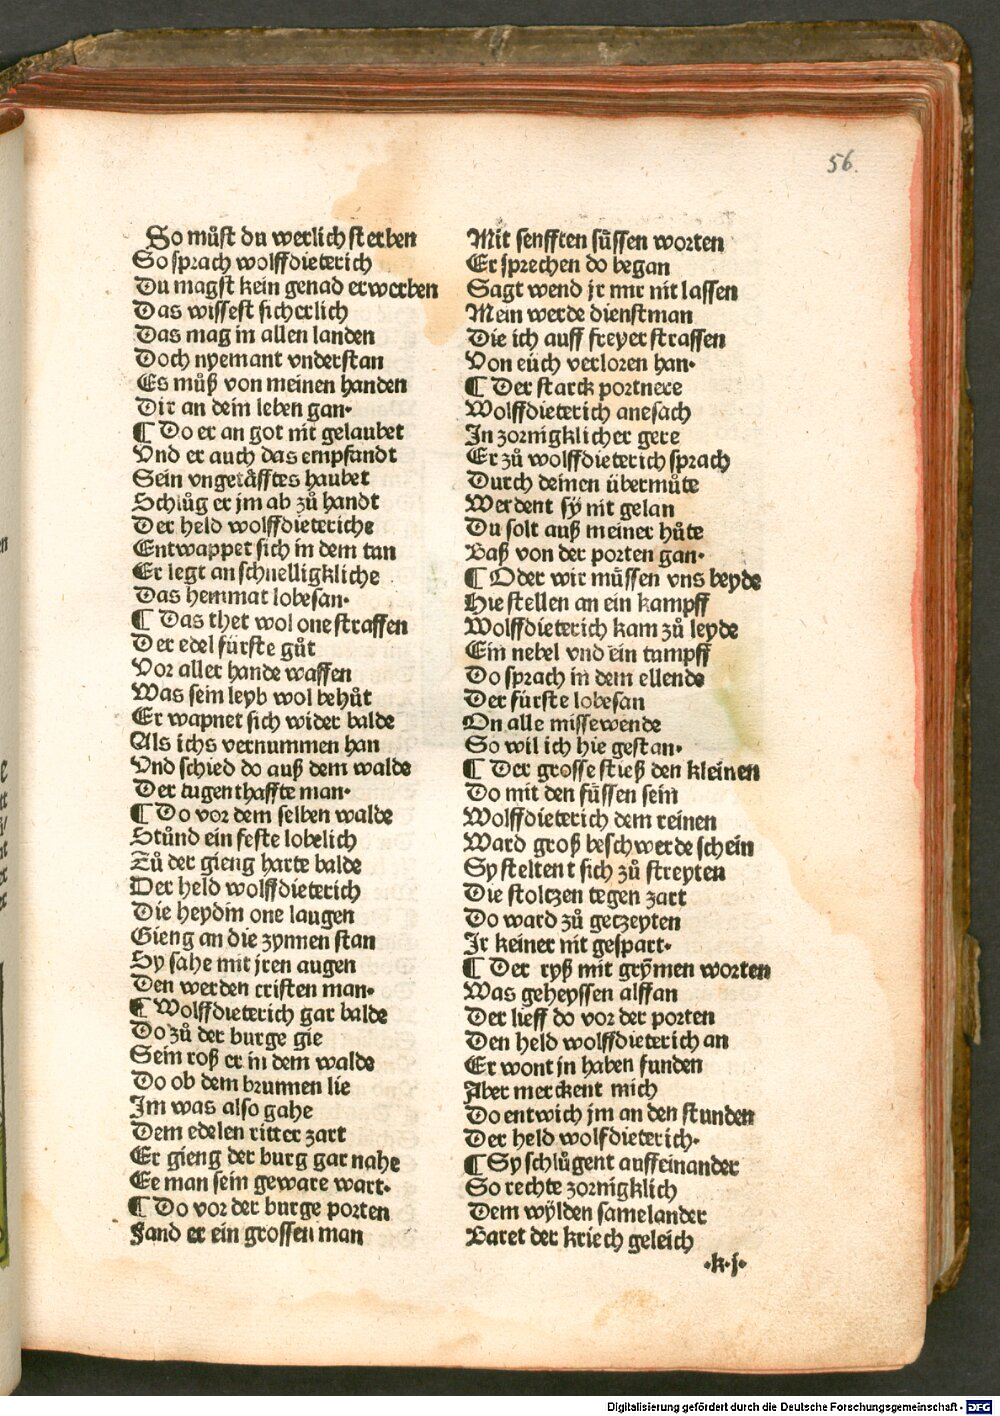 56.
So můſt du werlich ſterben
So ſprach wolffdieterich
Du magſt kein genad erwerben
Das wiſſeſt ſicherlich
Das mag in allen landen
Doch nyemant vnderſtan
Es můß von meinen handen
Dir an dein leben gan·
¶ Do er an got nit gelaubet
Vnd er auch das empfandt
Sein vngetåfftes haubet
Schlůg er jm ab zů handt
Der held wolffdieteriche
Entwappet ſich in dem tan
Er legt an ſchnelligkliche
Das hemmat lobeſan·
¶ Das thet wol one ſtraffen
Der edel fürſte gůt
Vor aller hande waffen
Was ſein leyb wol behůt
Er wapnet ſich wider balde
Als ichs vernummen han
Vnd ſchied do auß dem walde
Der tugenthaffte man·
¶ Do vor dem ſelben walde
Stůnd ein feſte lobelich
Zů der gieng harte balde
Der held wolffdieterich
Die heydin one laugen
Gieng an die zynnen ſtan
Sy ſahe mit jren augen
Den werden criſten man·
¶ Wolffdieterich gar balde
Do zů der burge gie
Sein roß er in dem walde
Do ob dem brunnen lie
Im was alſo gahe
Dem edelen ritter zart
Er gieng der burg gar nahe
Ee man ſein geware wart·
¶ Do vor der burge porten
Fand er ein groſſen man
Mit ſenfften ſüſſen worten
Er ſprechen do began
Sagt wend jr mir nit laſſen
Mein werde dienſtman
Die ich auff freyer ſtraſſen
Von eüch verloren han·
¶ Der ſtarck portnere
Wolffdieterich aneſach
In zornigklicher gere
Er zů wolffdieterich ſprach
Durch deinen übermůte
Werdent ſÿ nit gelan
Du ſolt auß meiner hůte
Baß von der porten gan·
¶ Oder wir müſſen vns beyde
Hie ſtellen an ein kampff
Wolffdieterich kam zů leyde
Ein nebel vnd ein tampff
Do ſprach in dem ellende
Der fürſte lobeſan
On alle miſſewende
So wil ich hie geſtan·
¶ Der groſſe ſtieß den kleinen
Do mit den füſſen ſein
Wolffdieterich dem reinen
Ward groß beſchwerde ſchein
Sy ſtelten t ſich zů ſtreyten
Die ſtoltzen tegen zart
Do ward zů getzeyten
Ir keiner nit geſpart·
¶ Der ryß mit grÿmen worten
Was geheyſſen alffan
Der lieff do vor der porten
Den held wolffdieterich an
Er wont jn haben funden
Aber merckent mich
Do entwich jm an den ſtunden
Der held wolfdieterich·
¶ Sy ſchlůgent auffeinander
So rechte zornigklich
Dem wÿlden ſamelander
Baret der kriech geleich
·k·j·
Digitalisierung gefördert durch die Deutsche Forschungsgemeinschaft - DFG